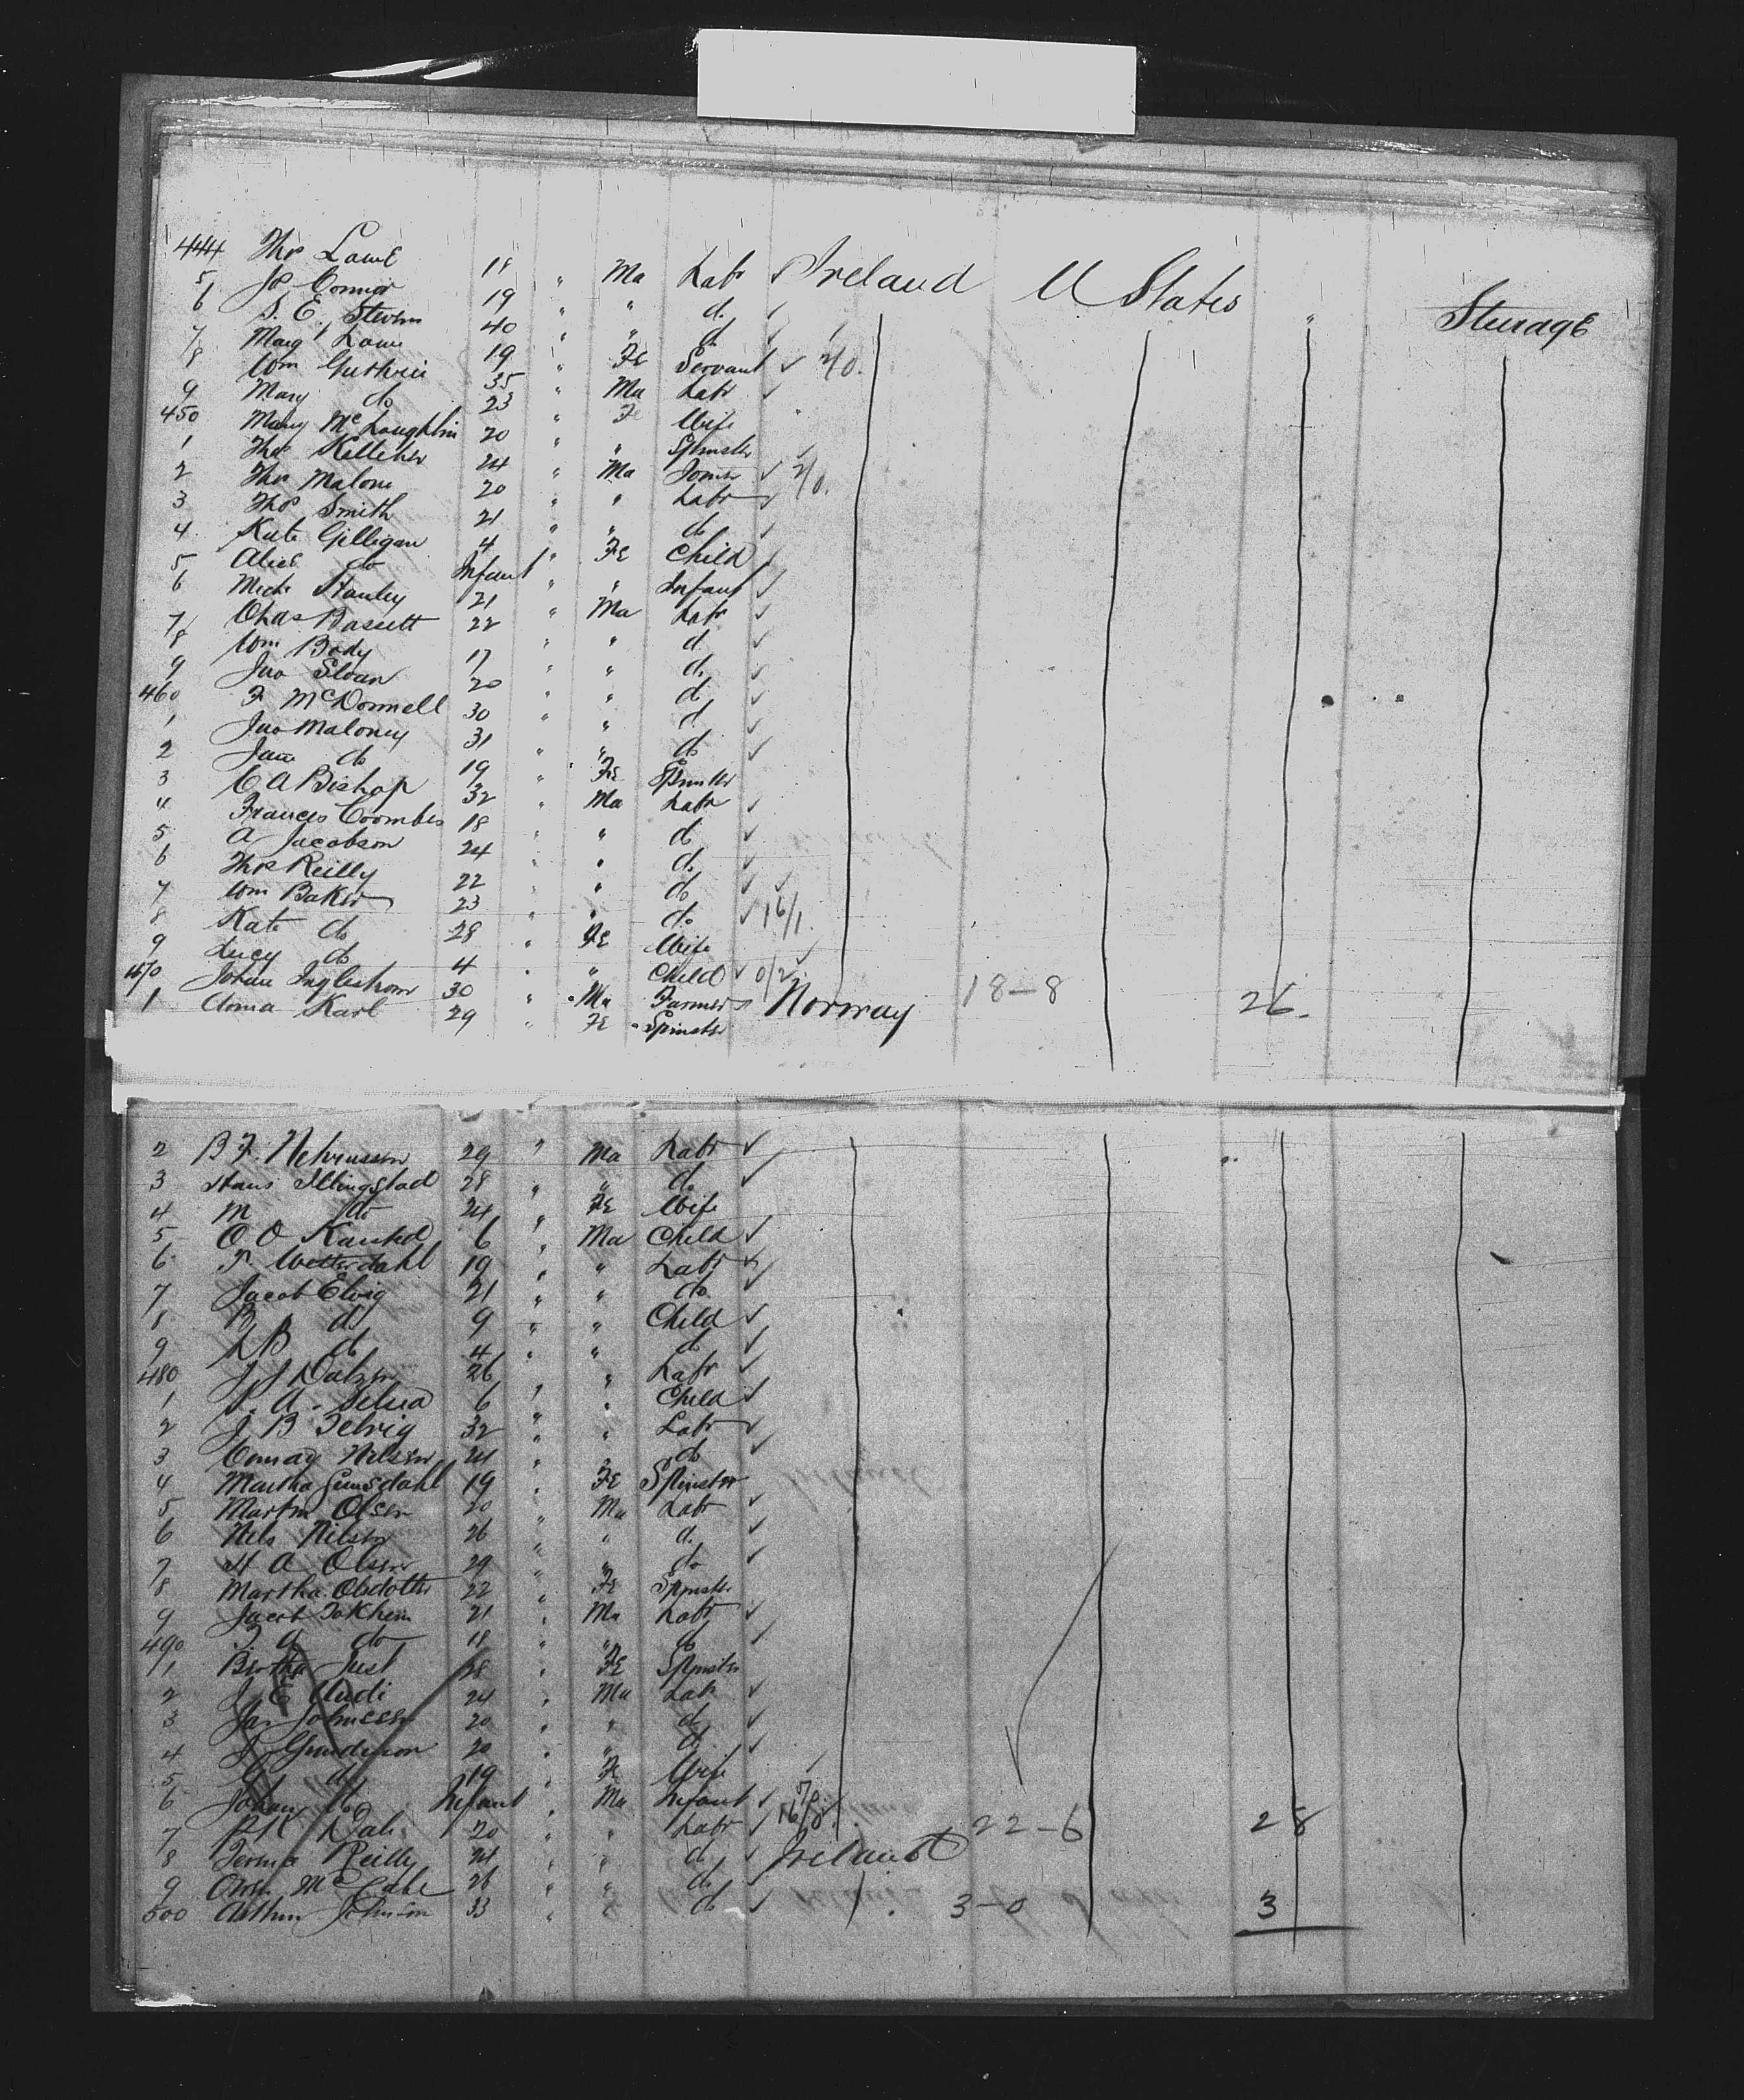 444 Thos Lowe 18 " Ma Labr ✓ Ireland U States " Steerage
5 Jas Connor 19 " " do ✓
6 S. E. Stevens 40 " " do ✓
7 Margt Lowe 19 " Fe Servant ✓ 2/0.
8 Wm Guthrie 35 " Ma Labr ✓
9 Mary do 23 " Fe Wife
450 Mary McLoughlin 20 " " Spinster ✓
1 Thos Kelleher 24 " Ma Joiner ✓ 2/0.
2 Thos Malone 20 " " Labr ✓
3 Thos Smith 21 " " do ✓
4 Kate Gilligan 4 " Fe Child ✓
5 Alice do Infant " " Infant ✓
6 Michl Stanley 21 " Ma Labr ✓
7 Chas Bassett 22 " " do ✓
8 Wm Body 17 " " do ✓
9 Jno Sloan 20 " " do ✓
460 F McDonnell 30 " " do ✓
1 Jno Maloney 31 " " do ✓
2 Jane do 19 " Fe Spinster
3 C A Bishop 32 " Ma Labr ✓
4 Frances Coombes 18 " " do ✓
5 A Jacobson 24 " " do ✓
6 Thos Reilly 22 " " do ✓ ✓
7 Wm Baker 23 " " do ✓ 16/1.
8 Kate do 28 " Fe Wife ✓
9 Lucy do 4 " " Child ✓ 0/2
470 Johan Inglestrom 30 " Ma Farmer Norway 18-8 26.
1 Anna Karl 29 " Fe Spinster
2 B F. 29 " Ma Labr ✓
3 Hans Illingstad 28 " " do ✓
4 M do 24 " Fe Wife
5 O O 6 " Ma Child ✓
6 Wetterdahl 19 " " Labr ✓
7 Jacob Elvig 21 " " do ✓
8 B do 9 " " Child ✓
9 L B do 4 " " do ✓
480 26 " " Labr ✓
1 A. 6 " " Child ✓
2 J B Telvig 32 " " Labr ✓
3 Conrad Nilsson 24 " " do ✓
4 Martha 19 " Fe Spinster
5 Martin Olsen 20 " Ma Labr ✓
6 Nels Nilson 26 " " do ✓
7 H A Olsen 29 " " do ✓
8 Martha Olsdotter 22 " Fe Spinster
9 Jacob Tokheim 21 " Ma Labr ✓
490 T A do 18 " " do ✓
1 Bertha 28 " Fe Spinster
2 J E 24 " Ma Labr ✓
3 Jas Johnessen 20 " " do ✓
4 Gunderson 20 " " do ✓
5 do 19 " Fe Wife ✓
6 Johan do Infant " Ma Infant ✓
7 20 " " Labr ✓ 16/8. 22-6 28
8 Reilly 24 " " do ✓ Ireland
9 Owen McCabe 26 " " do ✓
500 Arthur Johnson 33 " " do ✓ 3-0 3